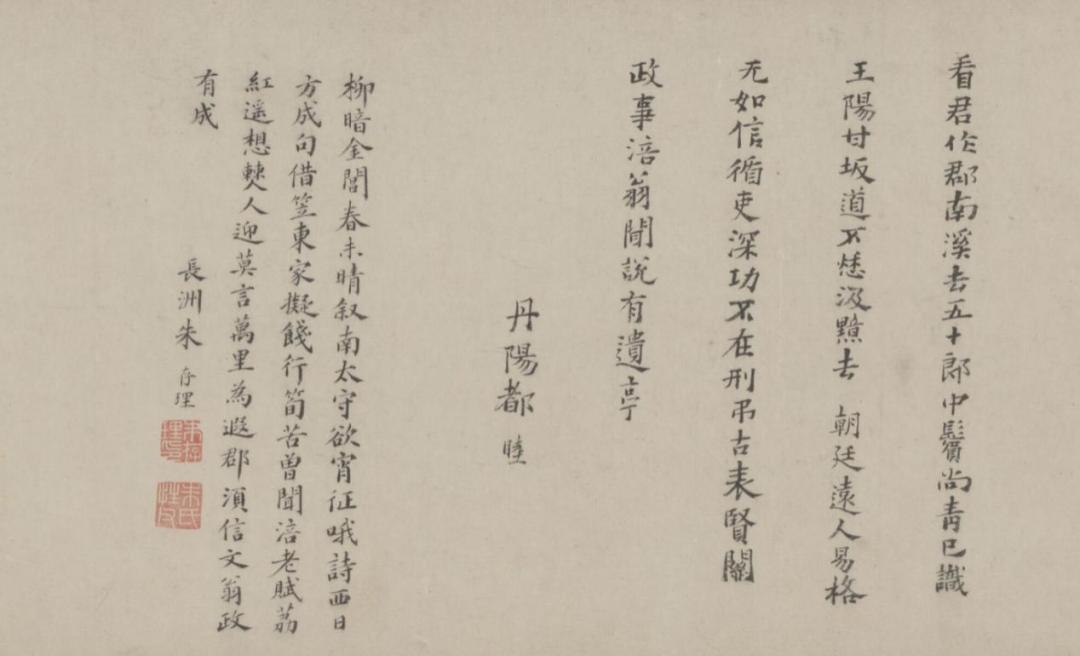 看君作郡南溪去五十郎中鬢尚青已識
王陽甘坂道不恁汲黯去 朝廷遠人易格
无如信循吏深功不在刑弔古表賢關
政事涪翁聞說有遺亭
丹陽都 睦
柳暗金閶春未晴叙南太守欲宵征哦詩西日
方成句借笠東家擬餞行筍苦曾聞涪老賦荔
紅遥想僰人迎莫言萬里為遐郡須信文翁政
有成
長洲朱 存理
朱存理印
朱氏性父